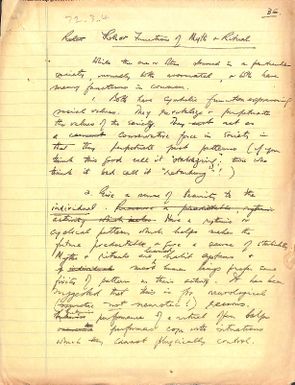 72.3.4
Other Functions of Myth & Ritual
While the one is often stressed in a particular
society, normally both are associated, & both have
many functions in common.
1. Both have symbolic function expressing
social values. They & perpetuate
the values of the society. They act as
a conservative force in society in
that they perpetuate past patterns (if you
think this good call it "stabilizing"; those who
think it bad call it "retarding"!)
2. Give a sense of security to the
individual. Have a rythmic or
cyclical pattern which helps make the
future predictable, & give a sense of stability
Myths & rituals are habit systems &
most human beings prefer some
fixity of pattern in their activity. It has been
suggested that this is for neurological
(not neurotic!) reasons.
performance of a ritual often helps
performers cope with situations
which they cannot physically control.